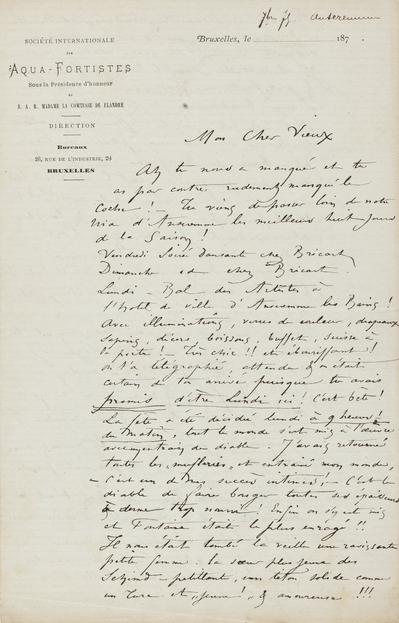 7bre 75 Anseremme
SOCIÉTÉ INTERNATIONALE
DES
AQUA-FORTISTES
Sous la Présidence d'honneur
DE
S. A. R. MADAME LA COMTESSE DE FLANDRE
DIRECTION
Bureaux
26, RUE DE L'INDUSTRIE, 24
BRUXELLES
Bruxelles, le 187
Mon Cher Vieux
Ah tu nous a manqué et tu
as par contre rudement manqué le
Coche ! – Tu viens de passer loin de notre
d'Anseremme les meilleurs huit jours
de la Saison !
Vendredi Soirée dansante chez Bricart
Dimanche id chez Bricart
Lundi – Bal des Artistes à
l'hôtel de ville d'Anseremme les Bains !
Avec illuminations, verres de couleur, drapeaux
Sapins, discours, boissons, buffet, suisse à
la porte ! – Très chic !! et ébouriffant !
On t'a télégraphié, attendu & on était
certain de ta arrivée puisque tu avais
promis d'être Lundi ici ! C'est bête !
La fête a été décidé lundi à 9 heures
du Matin, tout le monde s'est mis à l'œuvre
de diable. J'avais retourné
toutes les et entrainé mon monde,
– C'est un de mes succès intimes ! – C'est le
diable de faire bouger toutes ces
à dorme trop nourrie ! Enfin on s'y est mis
et Fontaine était le plus enragé !!
Il nous était tombé la veille une ravissante
petite femme : la sœur plus jeune des
– pétillante, un téton solide comme
un Turc et „jeune ! & amoureuse !!!